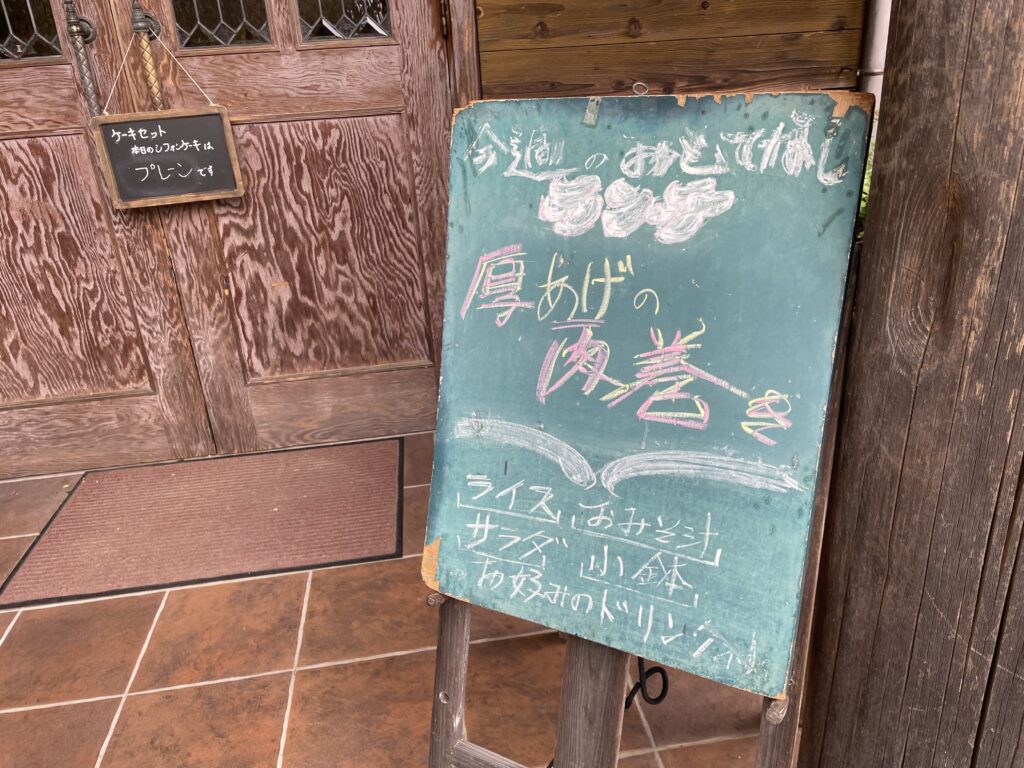 ケーキセット
本日のシフォンケーキは
プレーンです
今週のおもてなし
厚あげの
肉巻き
ライス おみそ汁
サラダ 小鉢
お好みのドリンク